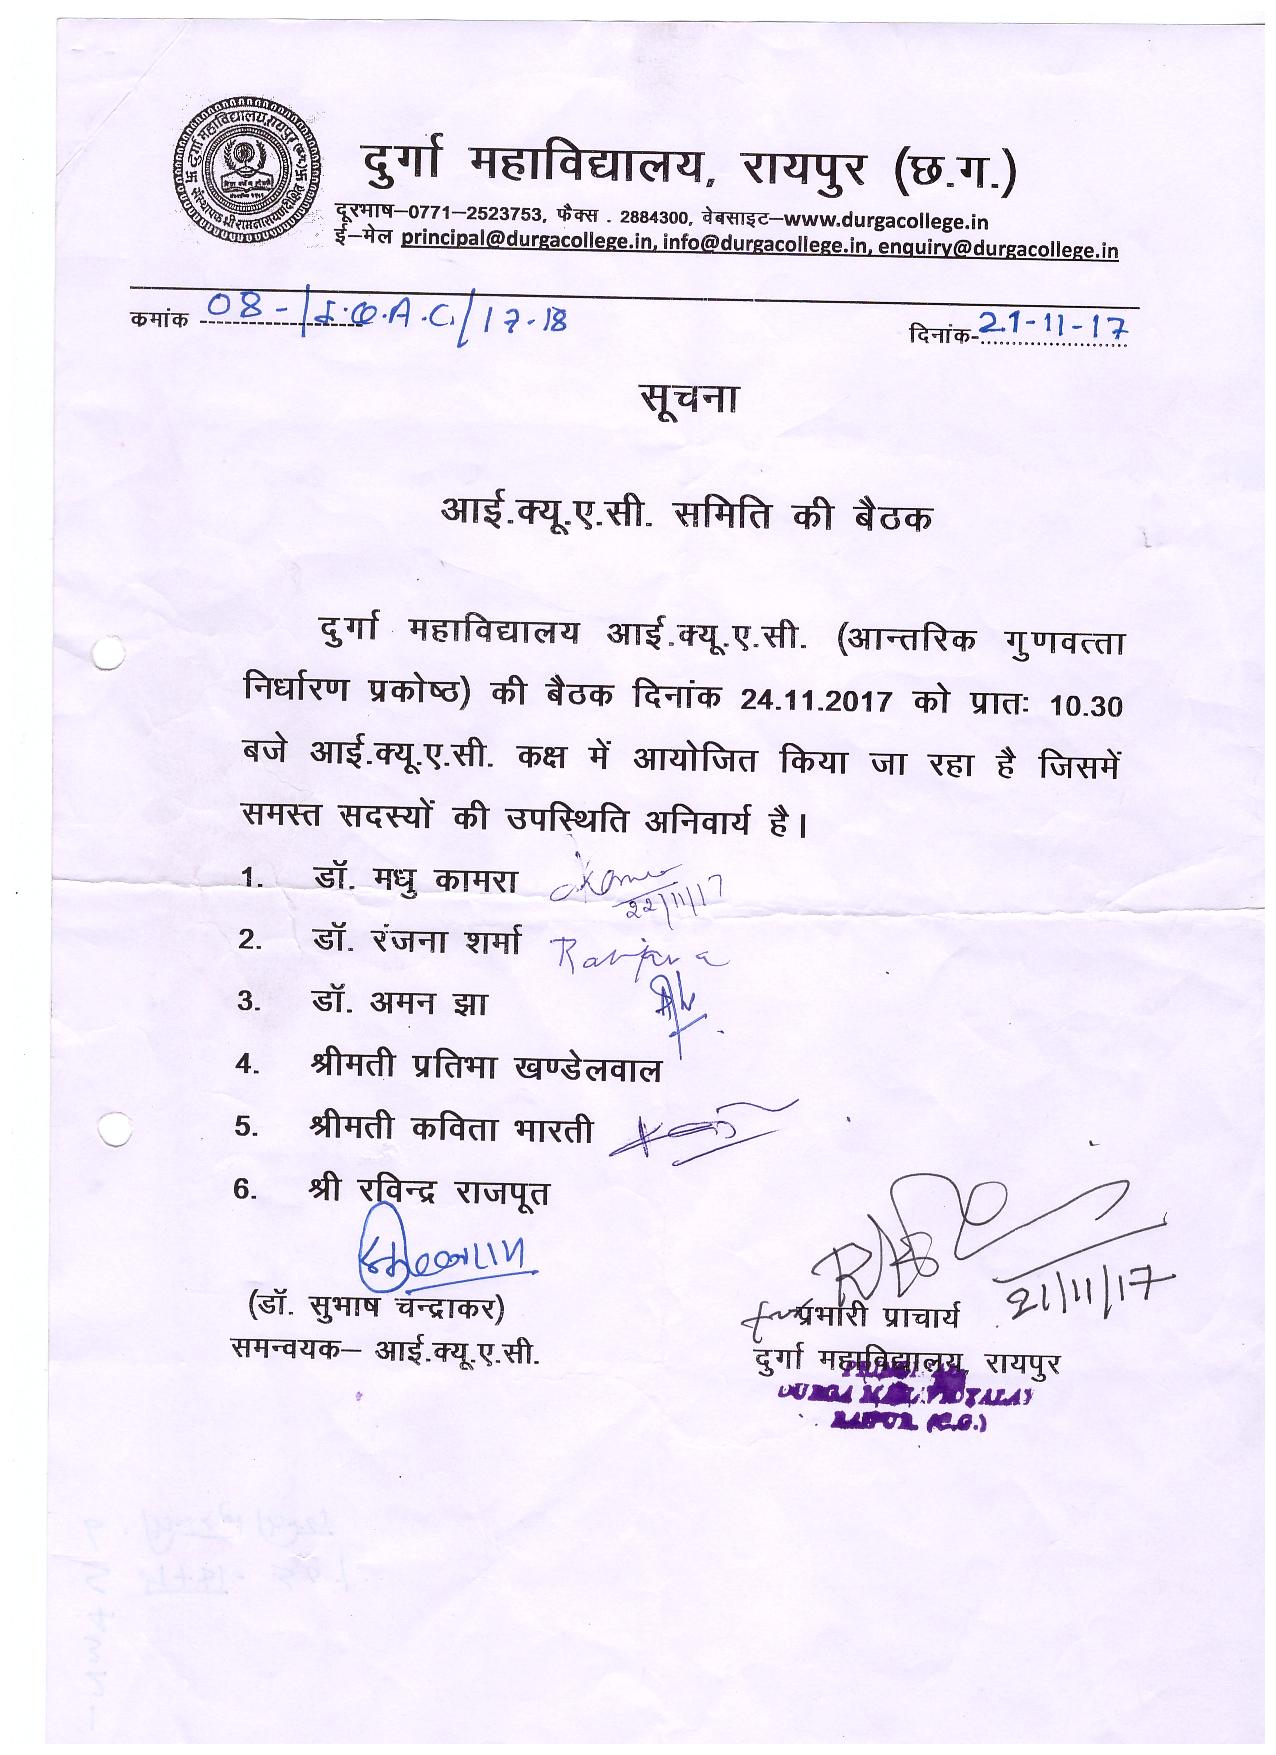 दुर्गा महाविद्यालय, रायपुर (छ.ग.)
दूरभाष–0771–2523753, फैक्स . 2884300, वेबसाइट–www.durgacollege.in
ई–मेल principal@durgacollege.in, info@durgacollege.in, enquiry@durgacollege.in
कमांक 08-/I.Q.A.C./17-18
दिनांक-21-11-17
सूचना
आई.क्यू.ए.सी. समिति की बैठक
दुर्गा महाविद्यालय आई.क्यू.ए.सी. (आन्तरिक गुणवत्ता
निर्धारण प्रकोष्ठ) की बैठक दिनांक 24.11.2017 को प्रातः 10.30
बजे आई.क्यू.ए.सी. कक्ष में आयोजित किया जा रहा है जिसमें
समस्त सदस्यों की उपस्थिति अनिवार्य है।
1. डॉ. मधु कामरा
22/11/17
2. डॉ. रंजना शर्मा Ranjana
3. डॉ. अमन झा
4. श्रीमती प्रतिभा खण्डेलवाल
5. श्रीमती कविता भारती
6. श्री रविन्द्र राजपूत
(डॉ. सुभाष चन्द्राकर)
समन्वयक– आई.क्यू.ए.सी.
21/11/17
for प्रभारी प्राचार्य
दुर्गा महाविद्यालय, रायपुर
DURGA MAHAVIDYALAY
RAIPUR (C.G.)